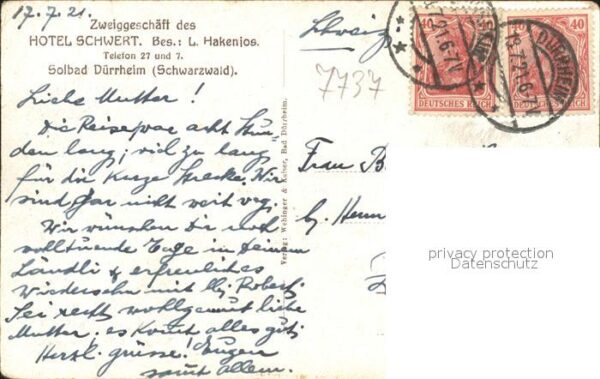 17.7.21.
Zweiggeschäft des
HOTEL SCHWERT. Bes.: L. Hakenjos.
Telefon 27 und 7.
Solbad Dürrheim (Schwarzwald).
Liebe Mutter!
Die Reise war acht Stun
den lang; viel zu lang
für die kurze Strecke. Wir
sind gar nicht weit weg.
Wir wünschen Dir noch
wohltuende Tage in Deinem
Ländli & erfreuliches
Wiedersehn mit Robert.
Sei recht wohlgemut liebe
Mutter. es kommt alles gut.
Herzl. grüsse! Eugen
samt allem.
Verlag: Wehinger & Kaiser, Bad Dürrheim.
7737
40
40
DEUTSCHES REICH
DEUTSCHES REICH
DÜRRHEIM
Frau
privacy protection
Datenschutz